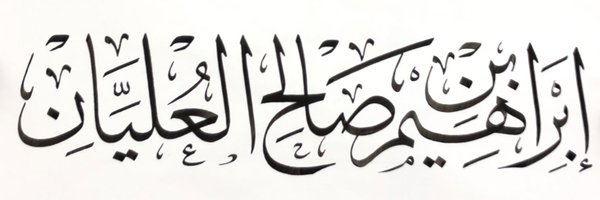 إِبْرَاهِيْم بْن صَالِح العُليَّان